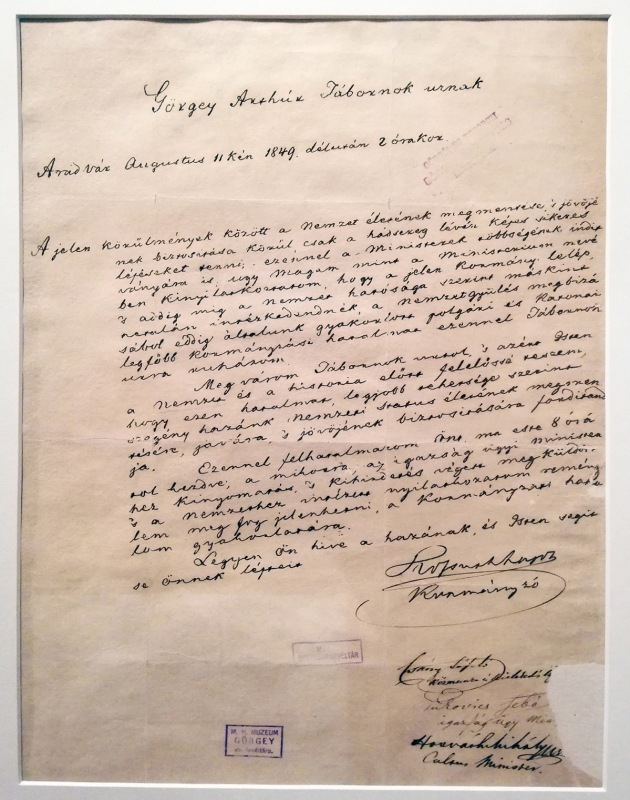 Görgey Arthúr Tábornok urnak
Arad vár Augustus 11kén 1849. délután 2 órakor
A jelen körülmények között a Nemzet életének megmentése, 's jövőjé
nek biztosítása körül, csak a hadsereg lévén képes sikeres
lépéseket tenni; ezennel a Ministerek többségének indít
ványára is, ugy magam mint a Ministerium nevé
ben kinyilatkoztatom, hogy a jelen Kormány lelép,
's addig míg a nemzet hatósága szerint máskint
netalán intézkedendnék, a Nemzetgyülés megbízá
sából eddig általunk gyakorlott polgári és katonai
legfőbb kormányzási hatalmat ezennel Tábornok
urra ruházom.
Meg várom Tábornok urtol, 's azért Isten
a Nemzet és a história előtt felelőssé teszem,
hogy ezen hatalmat, legjobb tehetsége szerint
szegény hazánk nemzeti status életének megmen
tésére, javára, 's jövőjének biztosítására fordítand
ja.
Ezennel felhatalmazom Önt, ma este 8 órá
tol kezdve, a mikorra, az igazság ügyi Ministe
hez kinyomatás, 's kihirdetés végett megküldöt
's a nemzethez intézett nyilatkozatom remény
lem meg fog jelenhetni, a Kormányzati hata
lom gyakorlatára.
Legyen Ön híve a hazának, és Isten segít
se Önnek lépteit
Kossuth Lajos
Kormányzó
Csány László
közmunka és közlekedési
Vukovics Sebő
igazság ügy Min
Horváth Mihály
Cultus Minister.
M. N. MUZEUM
GÖRGEY